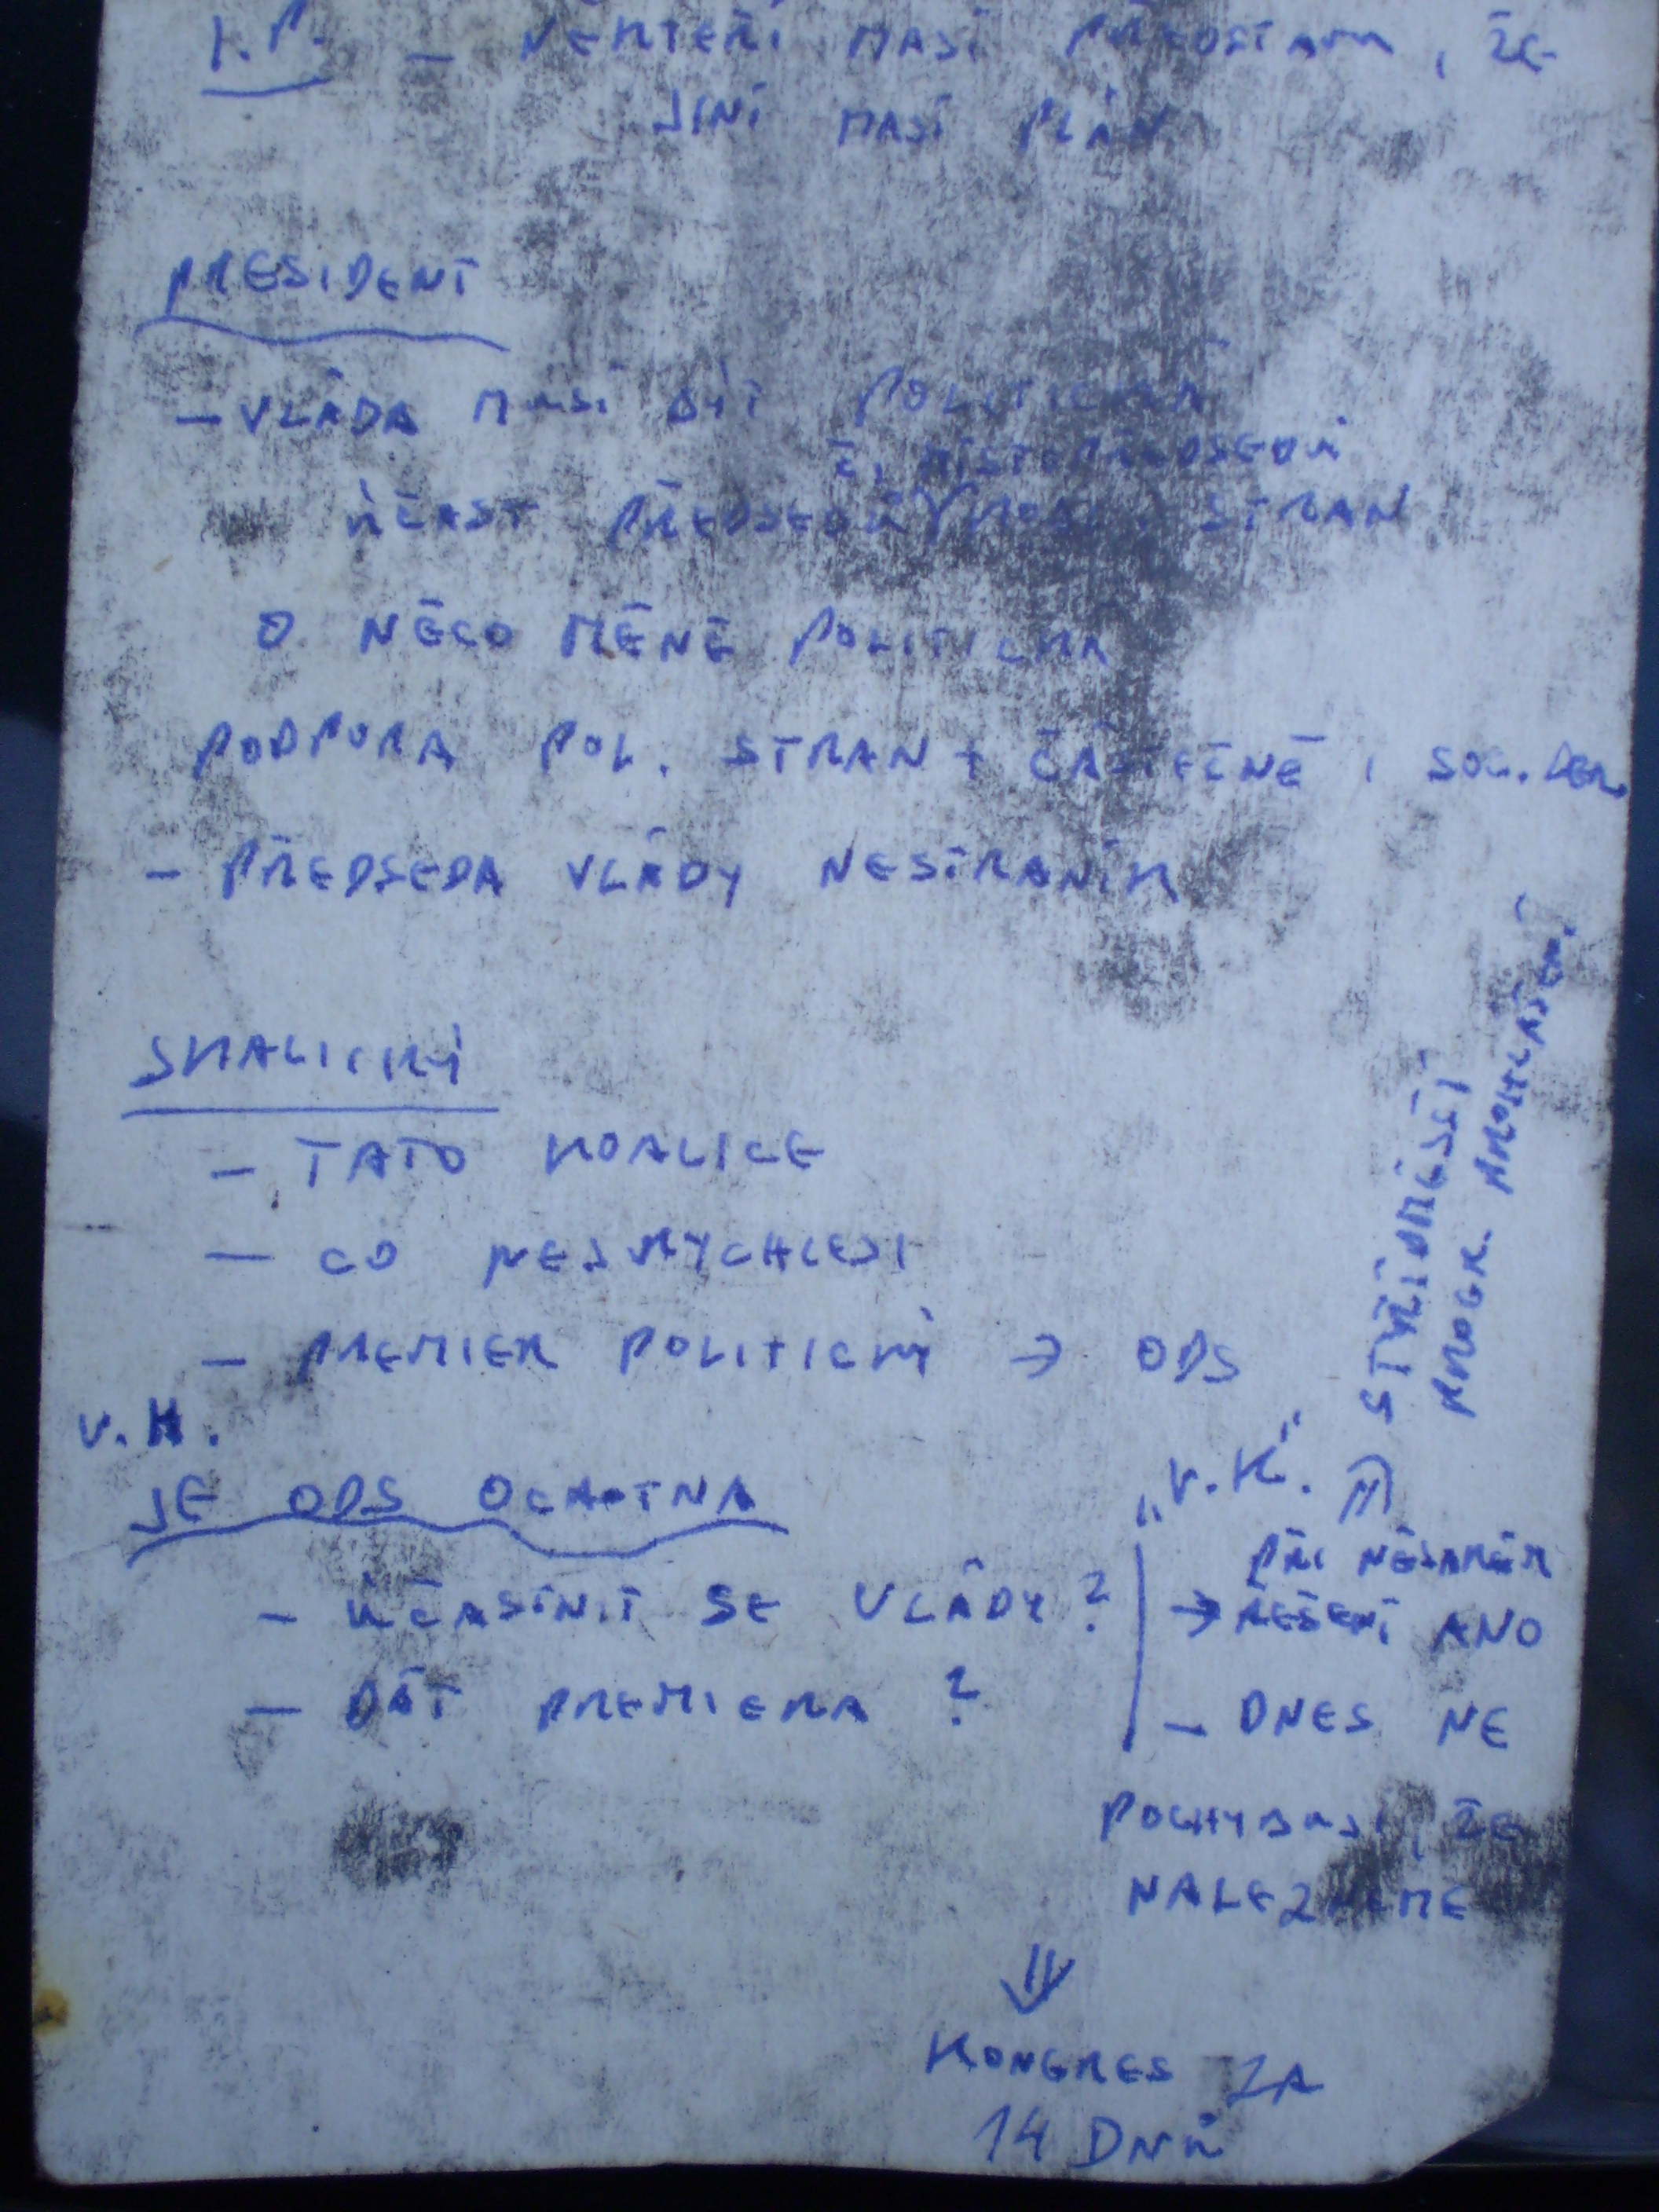 J.P. – NĚKTEŘÍ MAJÍ PŘEDSTAVU, ŽE
JINÍ MAJÍ PLÁN
PRESIDENT
– VLÁDA MUSÍ BÝT POLITICKÁ
Č, MÍSTOPŘEDSEDŮ
ÚČAST PŘEDSEDŮ STRAN
O NĚCO MÉNĚ POLITICKÁ
PODPORA POL. STRAN + ČÁSTEČNĚ I SOC. DEM.
– PŘEDSEDA VLÁDY NESTRANÍK
SKALICKÝ
– TATO KOALICE
– CO NEJRYCHLEJI
– PREMIER POLITICKÝ → ODS
V.H.
JE ODS OCHOTNA
– ÚČASTNIT SE VLÁDY?
– DÁT PREMIERA?
"V.K."
PŘI NĚJAKÉM
→ ŘEŠENÍ ANO
– DNES NE
POCHYBUJI, ŽE
NALEZNEME
⇓
KONGRES ZA
14 DNŮ
⇒ ČTYŘIDMĚSÍČNÍ
PROGR. PROHLÁŠENÍ